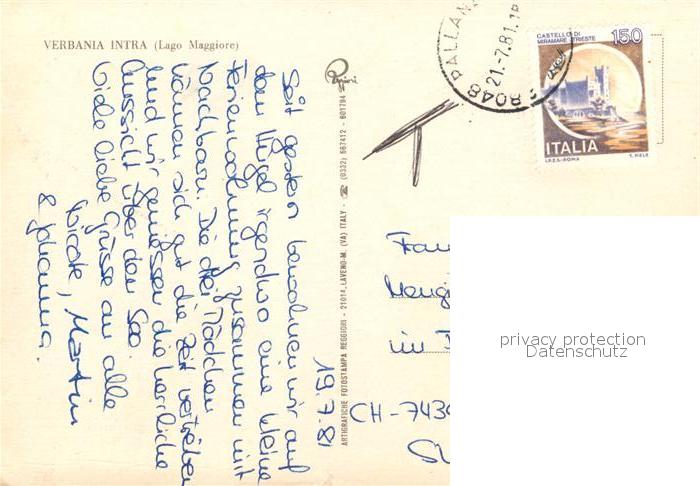 VERBANIA INTRA (Lago Maggiore)
19.7.81
Seit gestern bewohnen wir auf
dem Hügel irgendwo eine kleine
Ferienwohnung zusammen mit
Nachbarn. Die drei Mädchen
können sich gut die Zeit vertreiben
und wir geniessen die herrliche
Aussicht über den See.
Viele liebe Grüsse an alle
Nicole, Martin
& Johanna.
ARTIGRAFICHE FOTOSTAMPA REGGIORI - 21014 LAVENO-M. (VA) ITALY - ☎ (0332) 667412 - 601794
PALLAN
21.-7.81.18
28048
CASTELLO DI
MIRAMARE TRIESTE
150
ITALIA
I.P.Z.S.-ROMA
T. MELE
T
Fam
im
CH-743
privacy protection
Datenschutz